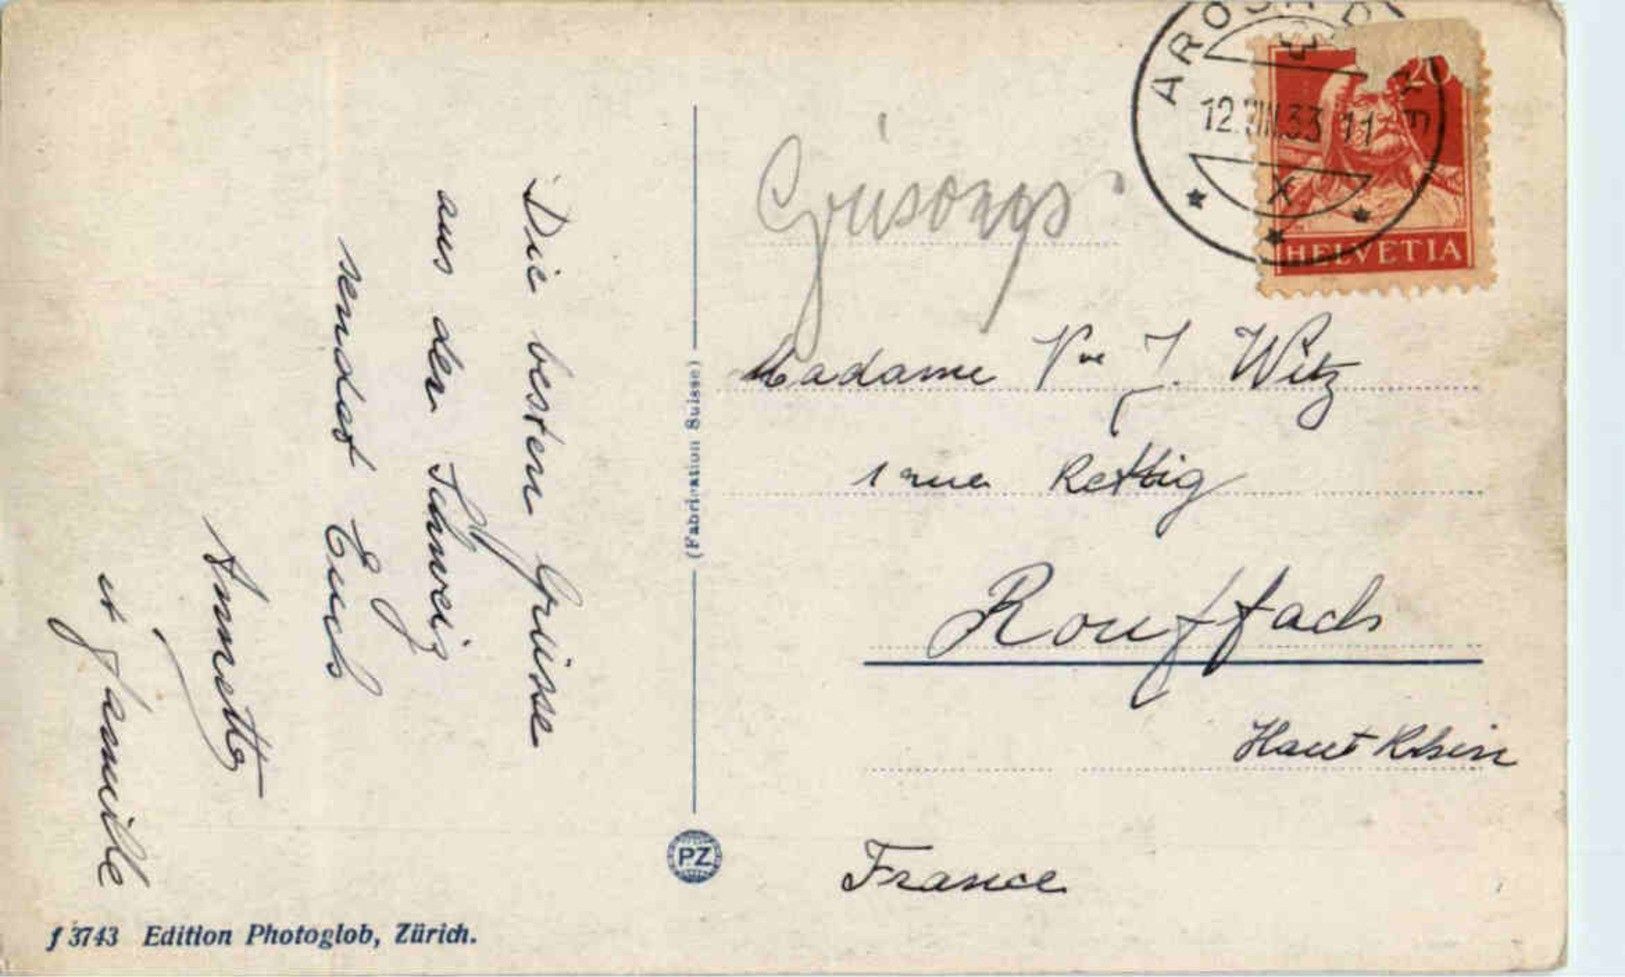 Die besten Grüsse
aus der Schweiz
sendet Euch
Annette
et famille
f 3743 Edition Photoglob, Zürich.
(Fabrication Suisse)
PZ
Grisons
AROSA
12.VIII.33 11
X
20
HELVETIA
Madame Vve J. Witz
1 rue Rettig
Rouffach
Haut Rhin
France